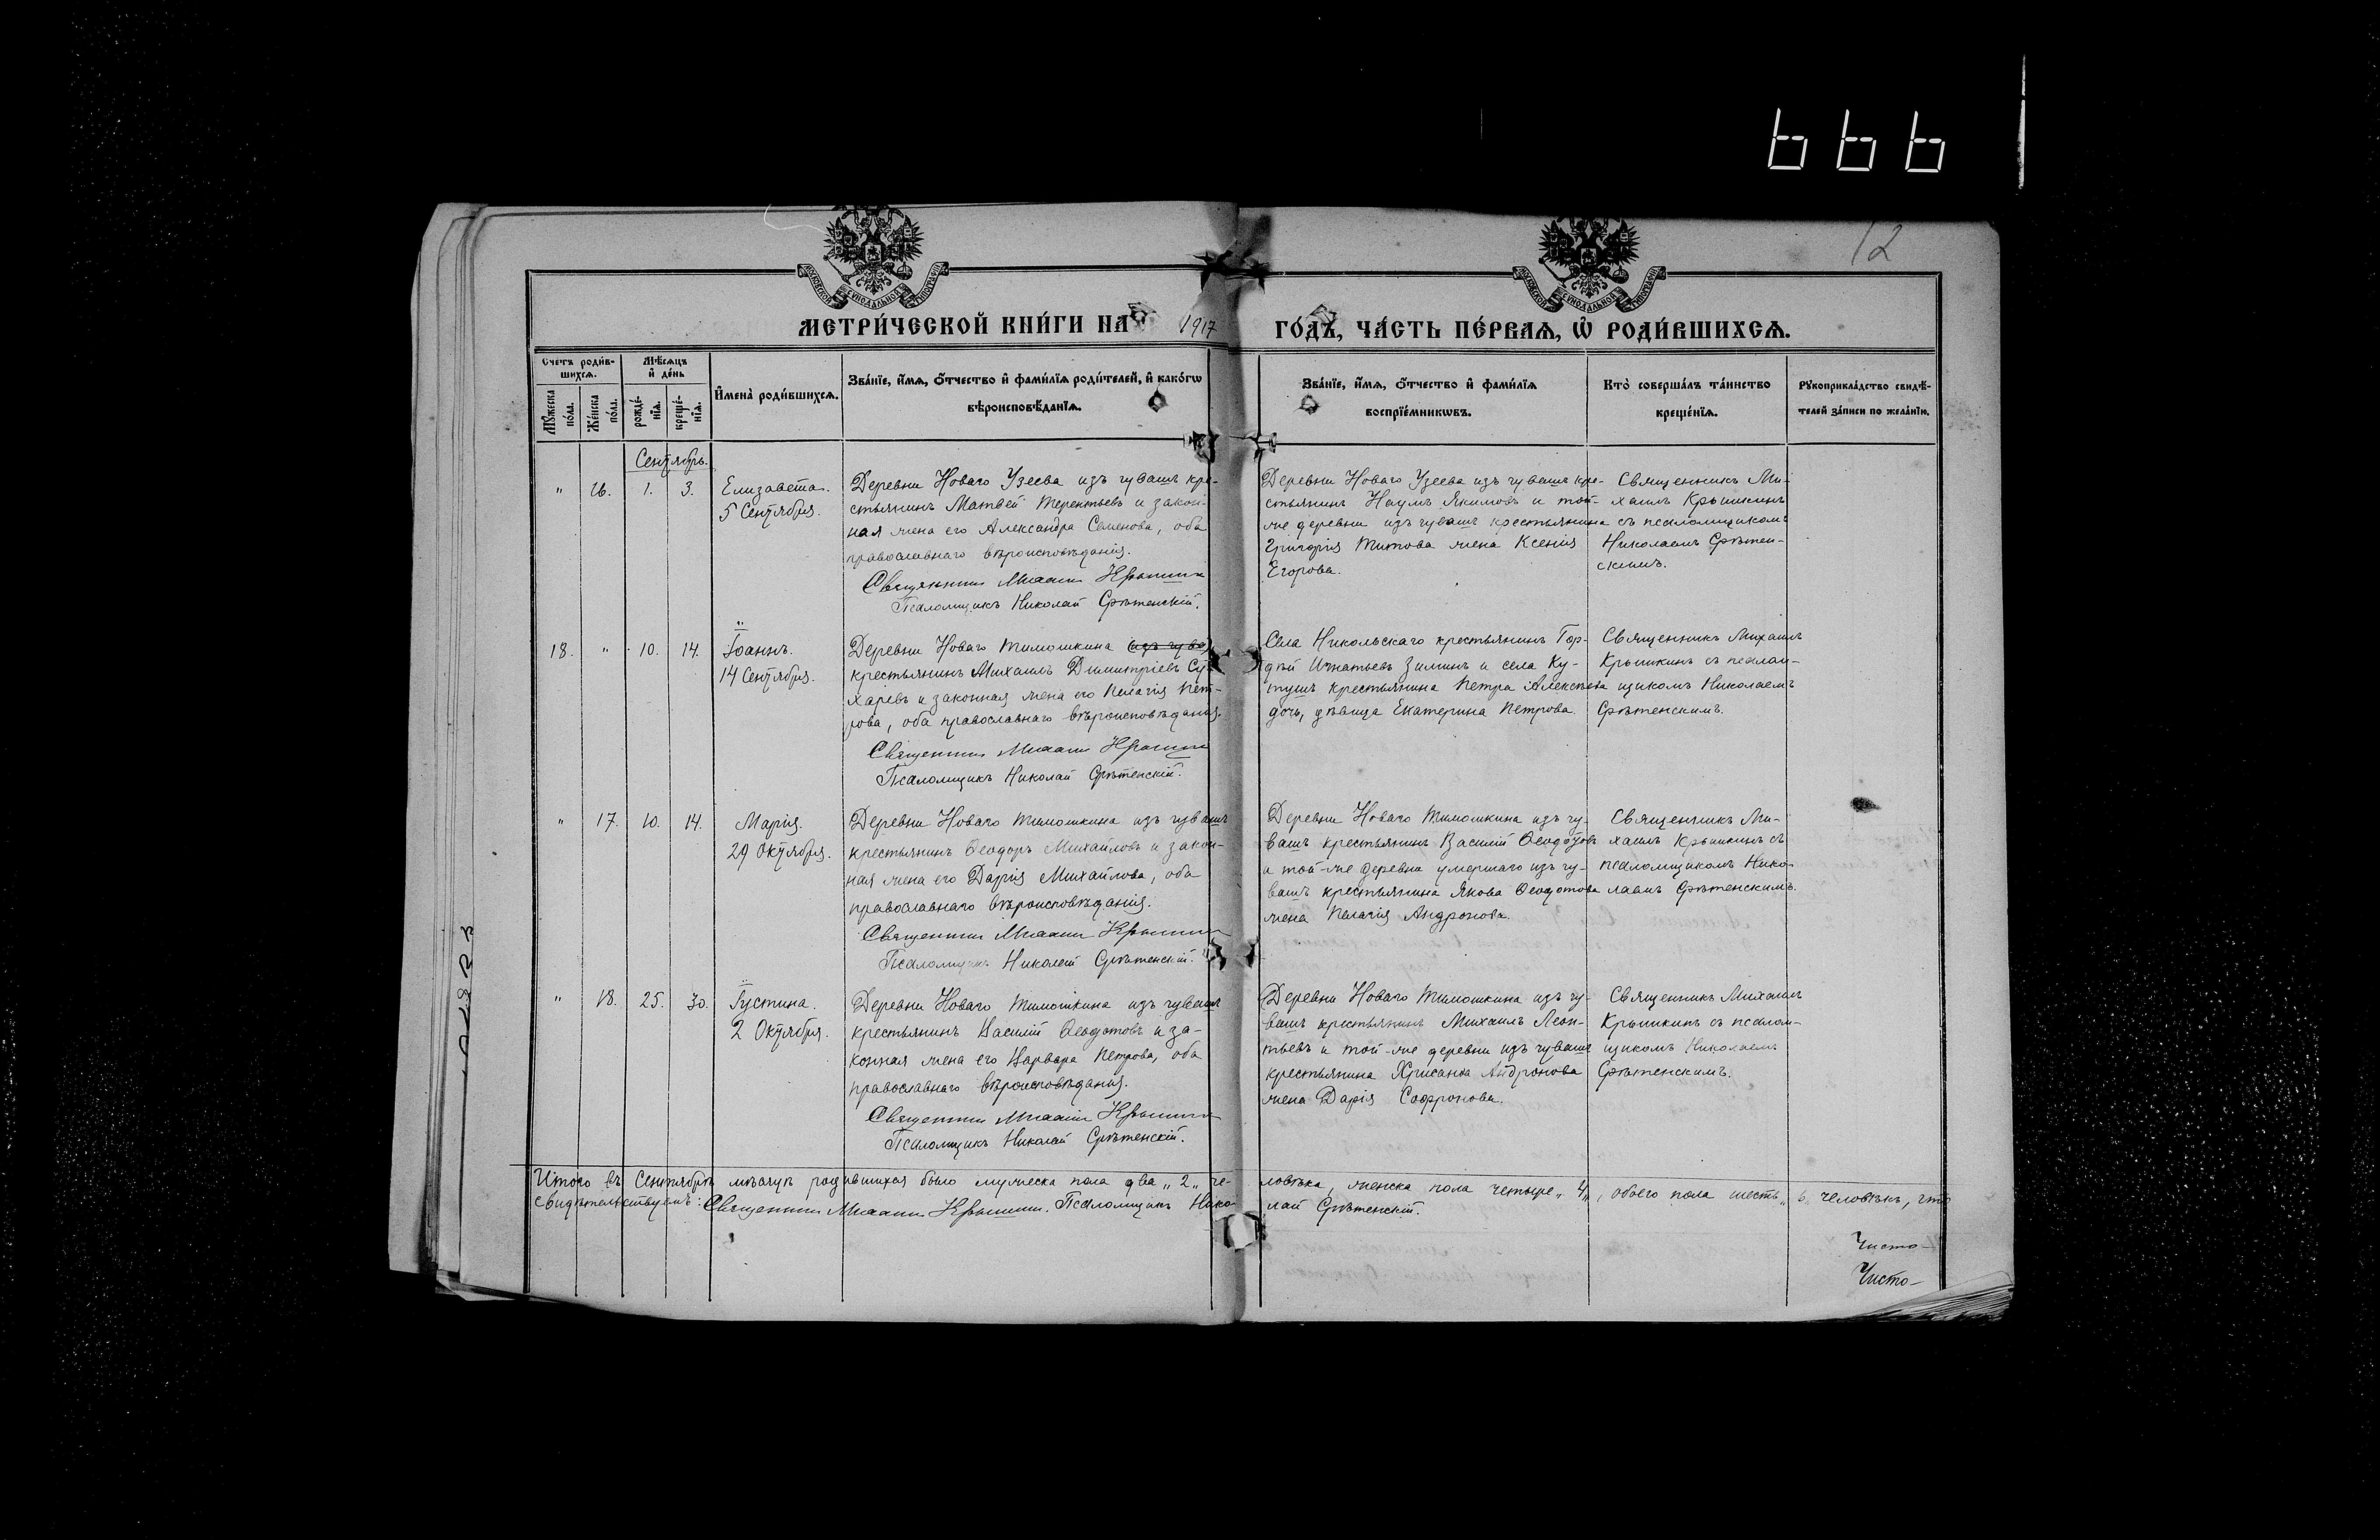 666
12
МОСКОВСКОЙ СѴНОДАЛЬНОЙ ТИПОГРАФІИ
МОСКОВСКОЙ СѴНОДАЛЬНОЙ ТИПОГРАФІИ
МЕТРИ́ЧЕСКОЙ КНИ́ГИ НА 1917 ГО́ДЪ, ЧА́СТЬ ПЕ́РВАѦ, Ѽ РОДИ́ВШИХСѦ.
Счетъ роди́в-
шихсѧ.
Мꙋжеска
по́ла.
Же́нска
по́ла.
Мѣ́сѧцъ
и҆ де́нь
рожде́-
нїѧ.
креще́-
нїѧ.
И҆мена̀ роди́вшихсѧ.
Зва́нїе, и҆́мѧ, ѻ҆́тчество и҆ фами́лїѧ роди́телей, и҆ како́гѡ
вѣроисповѣ́данїѧ.
Зва́нїе, и҆́мѧ, ѻ҆́тчество и҆ фами́лїѧ
воспрїе́мникѡвъ.
Кто̀ соверша́лъ та́инство
креще́нїѧ.
Рꙋкоприкла́дство свидѣ́-
телей за́писи по жела́нїю.
Сентябрь.
" 16. 1. 3.
Елизавета.
5 Сентября.
Деревни Новаго Узеева изъ чувашъ кре-
стьянинъ Матвей Терентьевъ и закон-
ная жена его Александра Семенова, оба
православнаго вѣроисповѣданія.
Священникъ Михаилъ Крышкинъ
Псаломщикъ Николай Срѣтенскій.
Деревни Новаго Узеева изъ чувашъ кре-
стьянинъ Наумъ Якимовъ и той-
же деревни изъ чувашъ крестьянина
Григорія Титова жена Ксенія
Егорова.
Священникъ Ми-
хаилъ Крышкинъ
съ псаломщикомъ
Николаемъ Срѣтен-
скимъ.
18. " 10. 14.
Іоаннъ.
14 Сентября.
Деревни Новаго Тимошкина (изъ чува)
крестьянинъ Михаилъ Димитріевъ Су-
харевъ и законная жена его Пелагія Пет-
рова, оба православнаго вѣроисповѣданія.
Священникъ Михаилъ Крышкинъ
Псаломщикъ Николай Срѣтенскій.
Села Никольскаго крестьянинъ Гор-
дѣй Игнатьевъ Зиминъ и села Ку-
тушъ крестьянина Петра Алексѣева
дочь, дѣвица Екатерина Петрова.
Священникъ Михаилъ
Крышкинъ съ псалом-
щикомъ Николаемъ
Срѣтенскимъ.
" 17. 10. 14.
Марія.
29 Октября.
Деревни Новаго Тимошкина изъ чувашъ
крестьянинъ Ѳеодоръ Михайловъ и закон-
ная жена его Дарія Михайлова, оба
православнаго вѣроисповѣданія.
Священникъ Михаилъ Крышкинъ
Псаломщикъ Николай Срѣтенскій.
Деревни Новаго Тимошкина изъ чу-
вашъ крестьянинъ Василій Ѳеодотовъ
и той-же деревни умершаго изъ чу-
вашъ крестьянина Якова Ѳеодотова
жена Пелагія Андронова.
Священникъ Ми-
хаилъ Крышкинъ съ
псаломщикомъ Нико-
лаемъ Срѣтенскимъ.
" 18. 25. 30.
Іустина.
2 Октября.
Деревни Новаго Тимошкина изъ чувашъ
крестьянинъ Василій Ѳеодотовъ и за-
конная жена его Варвара Петрова, оба
православнаго вѣроисповѣданія.
Священникъ Михаилъ Крышкинъ
Псаломщикъ Николай Срѣтенскій.
Деревни Новаго Тимошкина изъ чу-
вашъ крестьянинъ Михаилъ Леон-
тьевъ и той-же деревни изъ чувашъ
крестьянина Хрисанѳа Андронова
жена Дарія Софронова.
Священникъ Михаилъ
Крышкинъ съ псалом-
щикомъ Николаемъ
Срѣтенскимъ.
Итого въ Сентябрѣ мѣсяцѣ родившихся было мужеска пола два „2„ че-ловѣка, женска пола четыре „4„, обоего пола шесть „6„ человѣкъ, что
свидѣтельствуемъ: Священникъ Михаилъ Крышкинъ. Псаломщикъ Нико-лай Срѣтенскій.
Чисто-
Чисто-